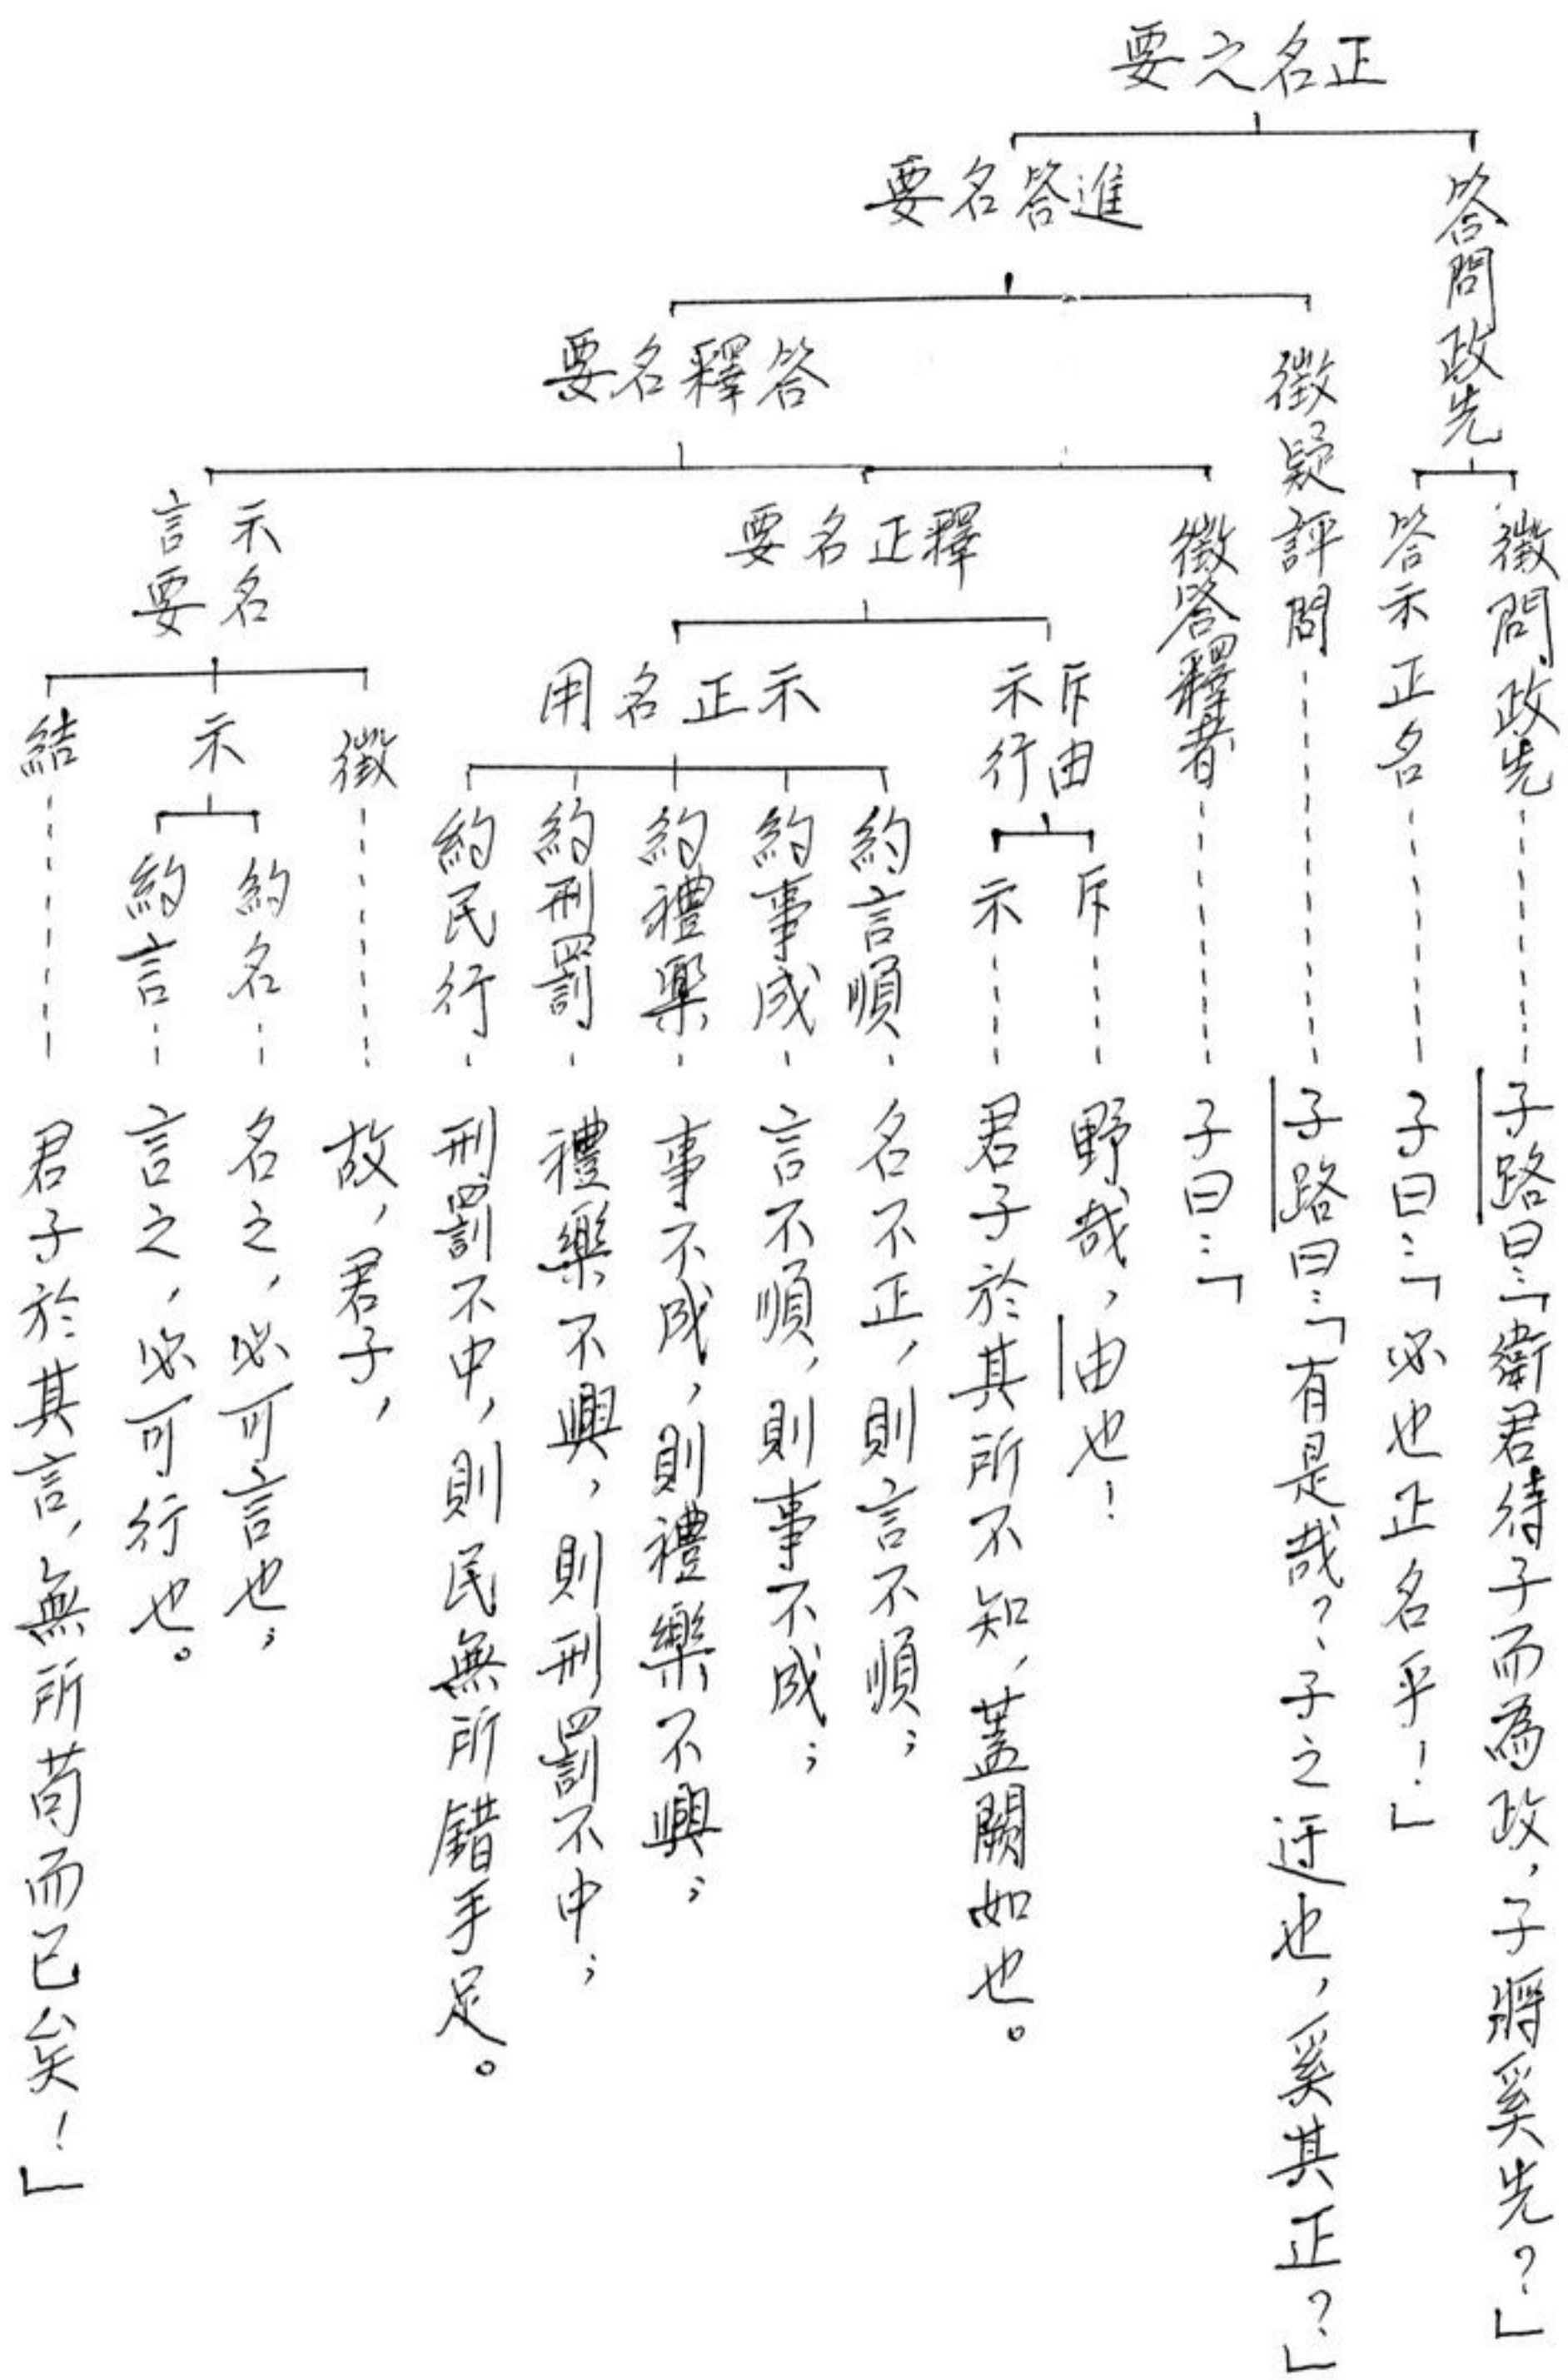 正名之要
答問政先
徵問政先
子路曰：「衛君待子而為政，子將奚先？」
答示正名
子曰：「必也正名乎！」
進答名要
徵疑評問
子路曰：「有是哉？、子之迂也，奚其正？」
答釋名要
徵答釋者
子曰：「
釋正名要
斥由
示行
斥
野哉，由也！
示
君子於其所不知，蓋闕如也。
示正名用
約言順
名不正，則言不順；
約事成
言不順，則事不成；
約禮樂
事不成，則禮樂不興；
約刑罰
禮樂不興，則刑罰不中；
約民行
刑罰不中，則民無所錯手足。
示名
言要
徵
故，君子，
示
約名
名之，必可言也；
約言
言之，必可行也。
結
君子於其言，無所苟而已矣！」